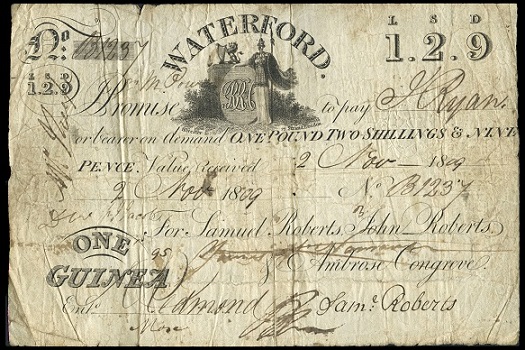 No B1237 WATERFORD. L S D 1.2.9
L S D 1.2.9
Promise to pay J Ryan.
or bearer on demand ONE POUND TWO SHILLINGS & NINE
PENCE, Value Received 2 Nov 1809
2 Nov 1809 No B1237
For Samuel Roberts, John Roberts,
ONE
& Ambrose Congreve.
GUINEA
Entd. Edmond Saml. Roberts